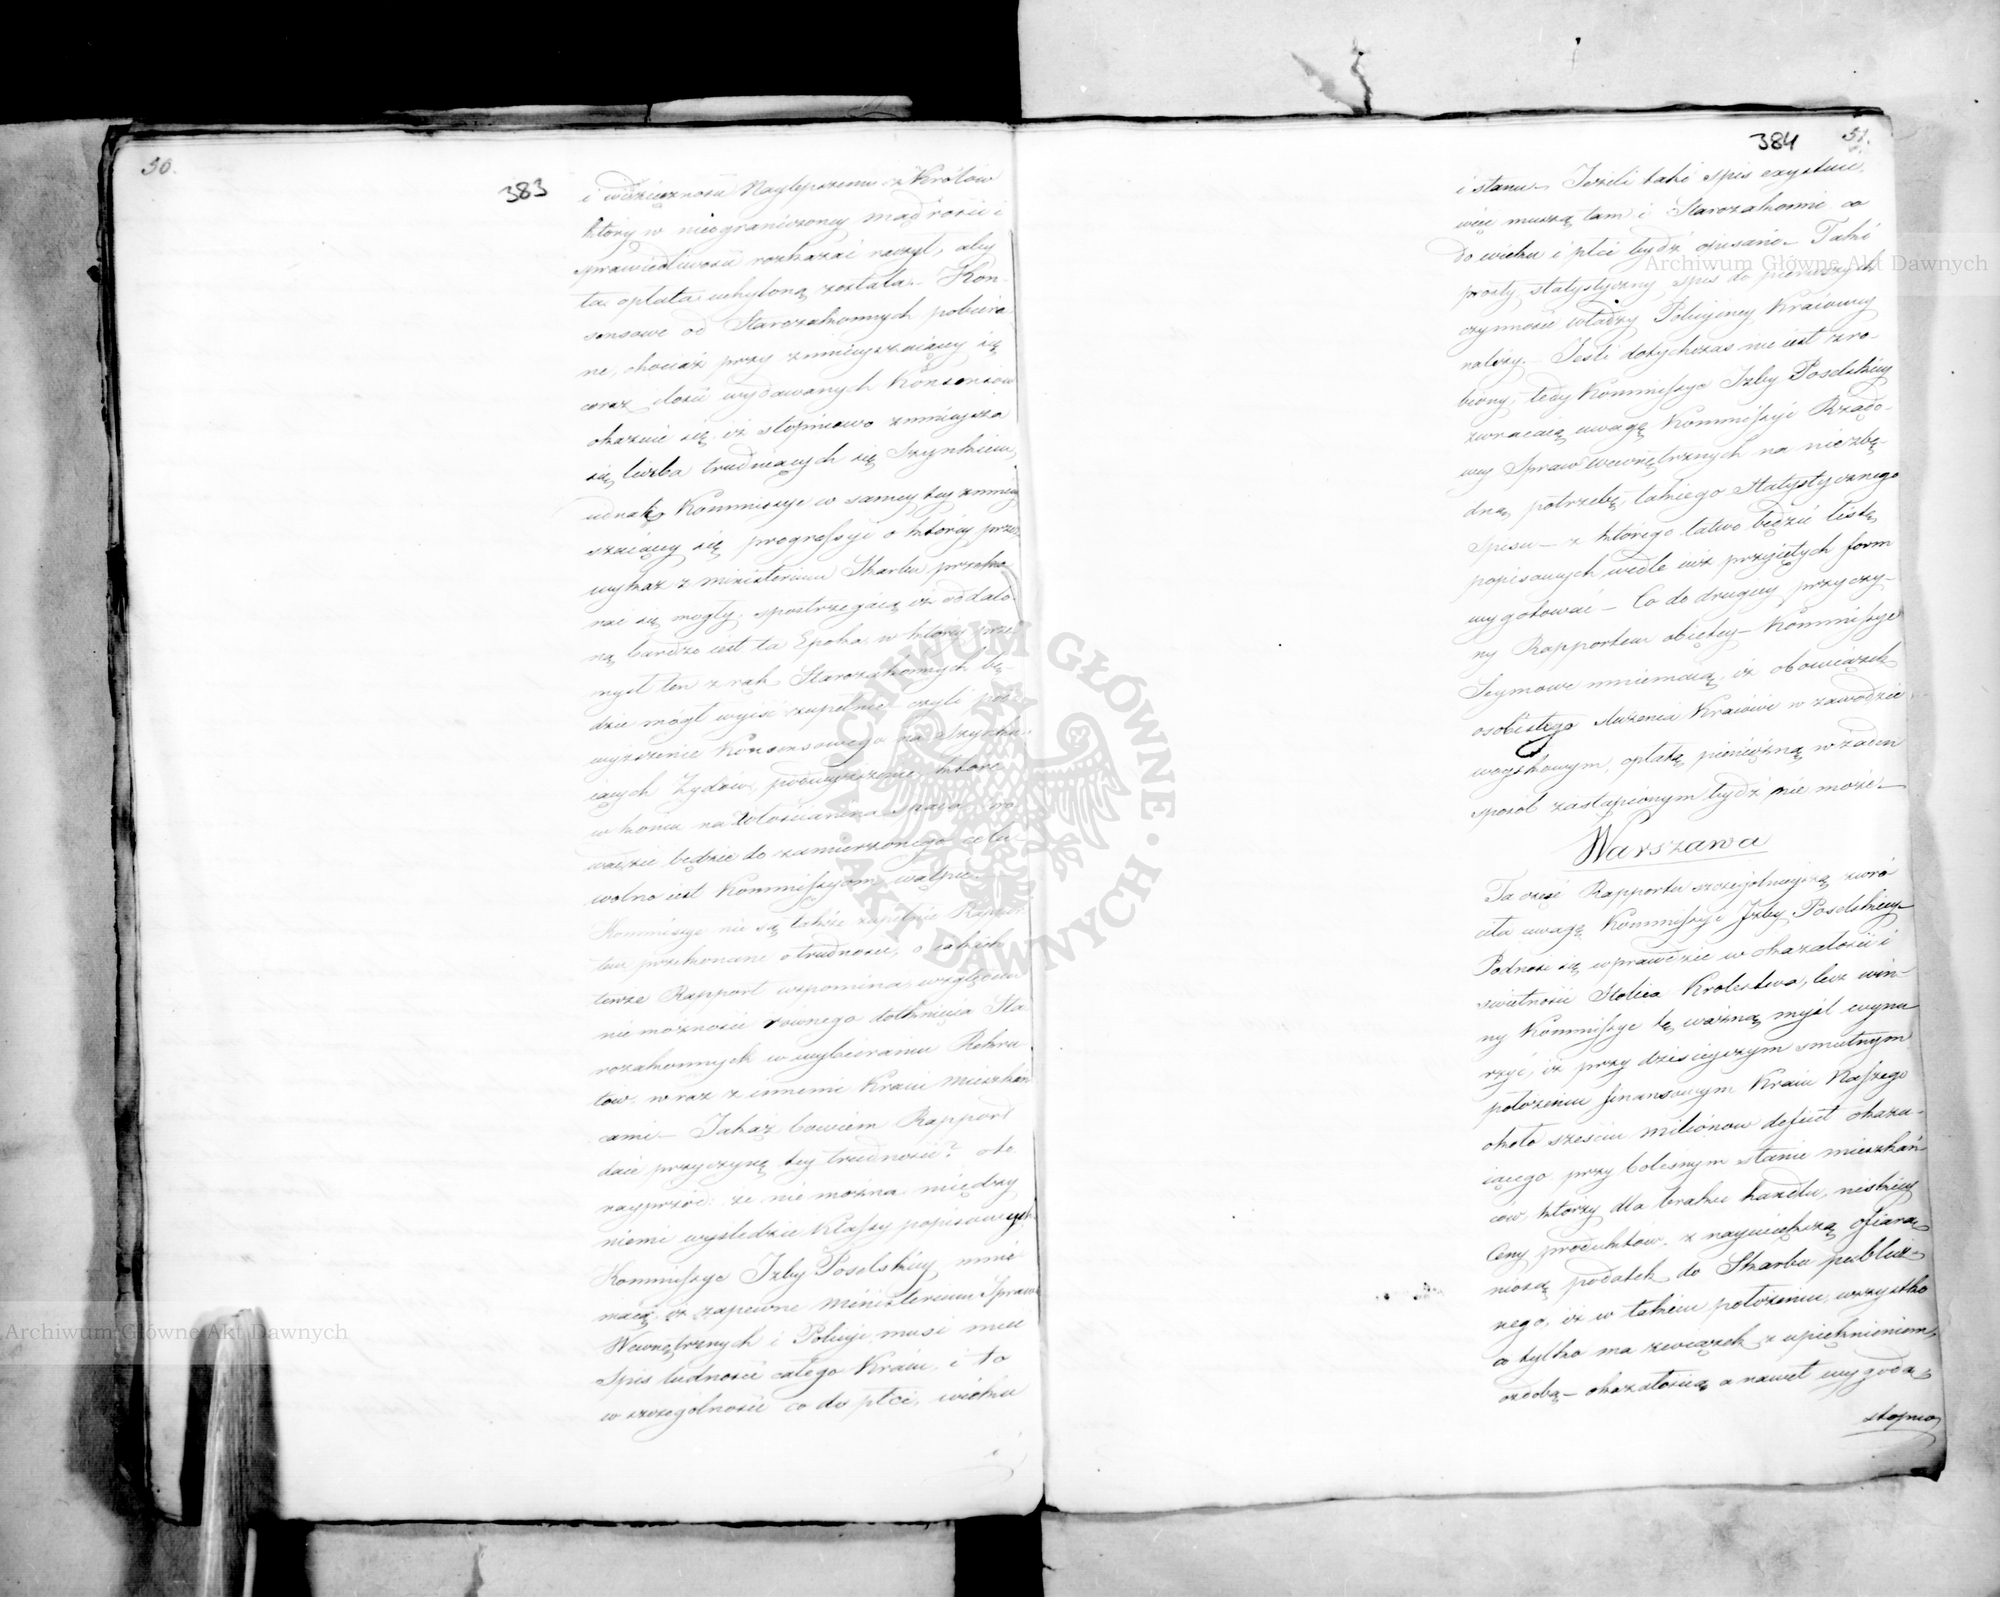 50.
383
i wdzięcznośći Naylepszemu z Królów
który w nieograniczoney mądrości i
sprawiedliwości rozkazać raczył, aby
ta opłata uchyloną została. Kon-
sensowe od Starozakonnych pobiera-
ne, chociaż przy zmnieyszaiącey się
coraz ilości wydawanych Konsensów
okazuie się, iż stopniowo zmnieysza
się liczba trudniących się Szynkiem,
iednak Kommissye w samey tey zmniey
szaiącey się progressyi o którey przez
wykaz z Ministerium Skarbu przeko
nać się mogły, spostrzegaią iż oddalo
ną bardzo iest ta Epoka, w którey prze
mysł ten z rąk Starozakonnych bę-
dzie mógł wyiść zupełnie, czyli pod-
wyższenie Konsensowego na Szynku-
iących Żydów, podwyższenie, które
w końcu na Włościanina spada, pro
wadzić będzie do zamierzonego celu
wolno iest Kommissyom wątpić.
Kommissye nie są także zupełnie Rappor
tem przekonane o trudności, o iakich
tenże Rapport wspomina, względem
niemożności równego dotknięcia Sta
rozakonnych w wybieraniu Rekru
tów wraz z innemi Kraiu mieszkań
cami. Jakąż bowiem Rapport
daie przyczynę tey trudności? oto
nayprzód: że nie można między
niemi wyśledzić Klassy popisowych
Kommissye Izby Poselskiey mnie
maią, iż zapewne Ministerium Spraw
Wewnętrznych i Policyi musi mieć
Spis ludności całego Kraiu, i to
w szczególności co do płci, wieku
i
384
51.
i stanu. Jeżeli taki spis exystuie,
więc muszą tam i Starozakonni co
do wieku i płci bydź opisani. Taki
prosty statystyczny spis do pierwszych
czynności władzy Policyiney Kraiowey
należy. Jeśli dotychczas nie iest zro-
biony, tedy Kommissye Izby Poselskiey
zwracaią uwagę Kommissyi Rządo-
wey Spraw Wewnętrznych na niezbę-
dną potrzebę takiego Statystycznego
Spisu z którego łatwo będzie listę
popisowych wedle iuż przyiętych form
wygotować. Co do drugiey przyczy-
ny Rapportem obiętey Kommissye
Seymowe mniemaią, iż obowiązek
osobistego służenia Kraiowi w zawodzie
woyskowym, opłatą pieniężną w żaden
sposób zastąpionym bydź nie może.
Warszawa
Ta część Rapportu szczególnieyszą zwró
ciła uwagę Kommissyi Izby Poselskiey
Podnosi się wprawdzie w okazałości i
świetności Stolica Królestwa, lecz win-
ny Kommissye tę ważną myśl wynu
rzyć, iż przy dzisieyszym smutnym
położeniu finansowym Kraiu Naszego
około sześciu milionów deficit okazu-
iącego przy bolesnym stanie mieszkań-
ców, którzy dla braku handlu, niskiey
Ceny produktów, z naywiększą ofiarą
niosą podatek do Skarbu publicz-
nego, iż w takim położeniu wszystko
co tylko ma związek z upięknieniem,
ozdobą okazałością a nawet wygodą
stopnio
ARCHIWUM GŁÓWNE AKT DAWNYCH
Archiwum Główne Akt Dawnych
Archiwum Główne Akt Dawnych